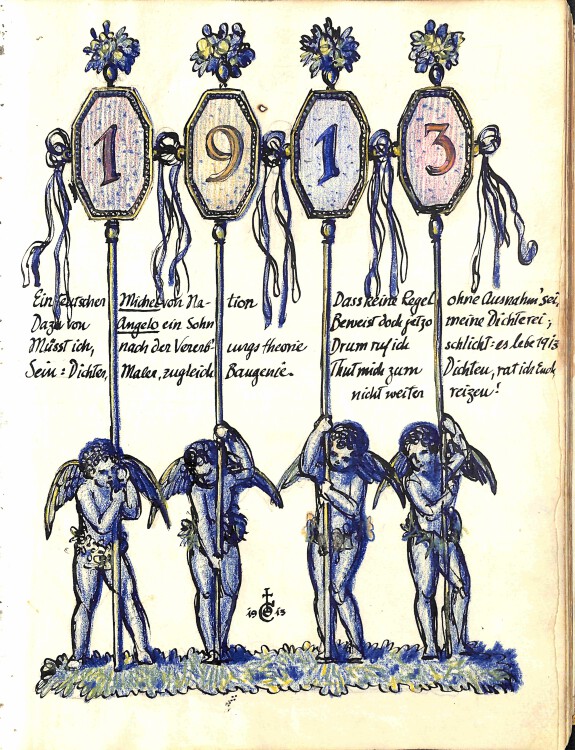 1 9 1 3
Ein teutscher Michel von Na- tion
Dazu von Angelo ein Sohn
Müsst ich, nach der Vererb- ungs theorie
Sein: Dichter, Maler, zugleich Baugenie.
Dass keine Regel ohne Ausnahm' sei,
Beweist doch jetzo meine Dichterei;
Drum ruf ich schlicht: es lebe 1913
Thut mich zum Dichten, rat ich Euch,
nicht weiter reizen!
19 13